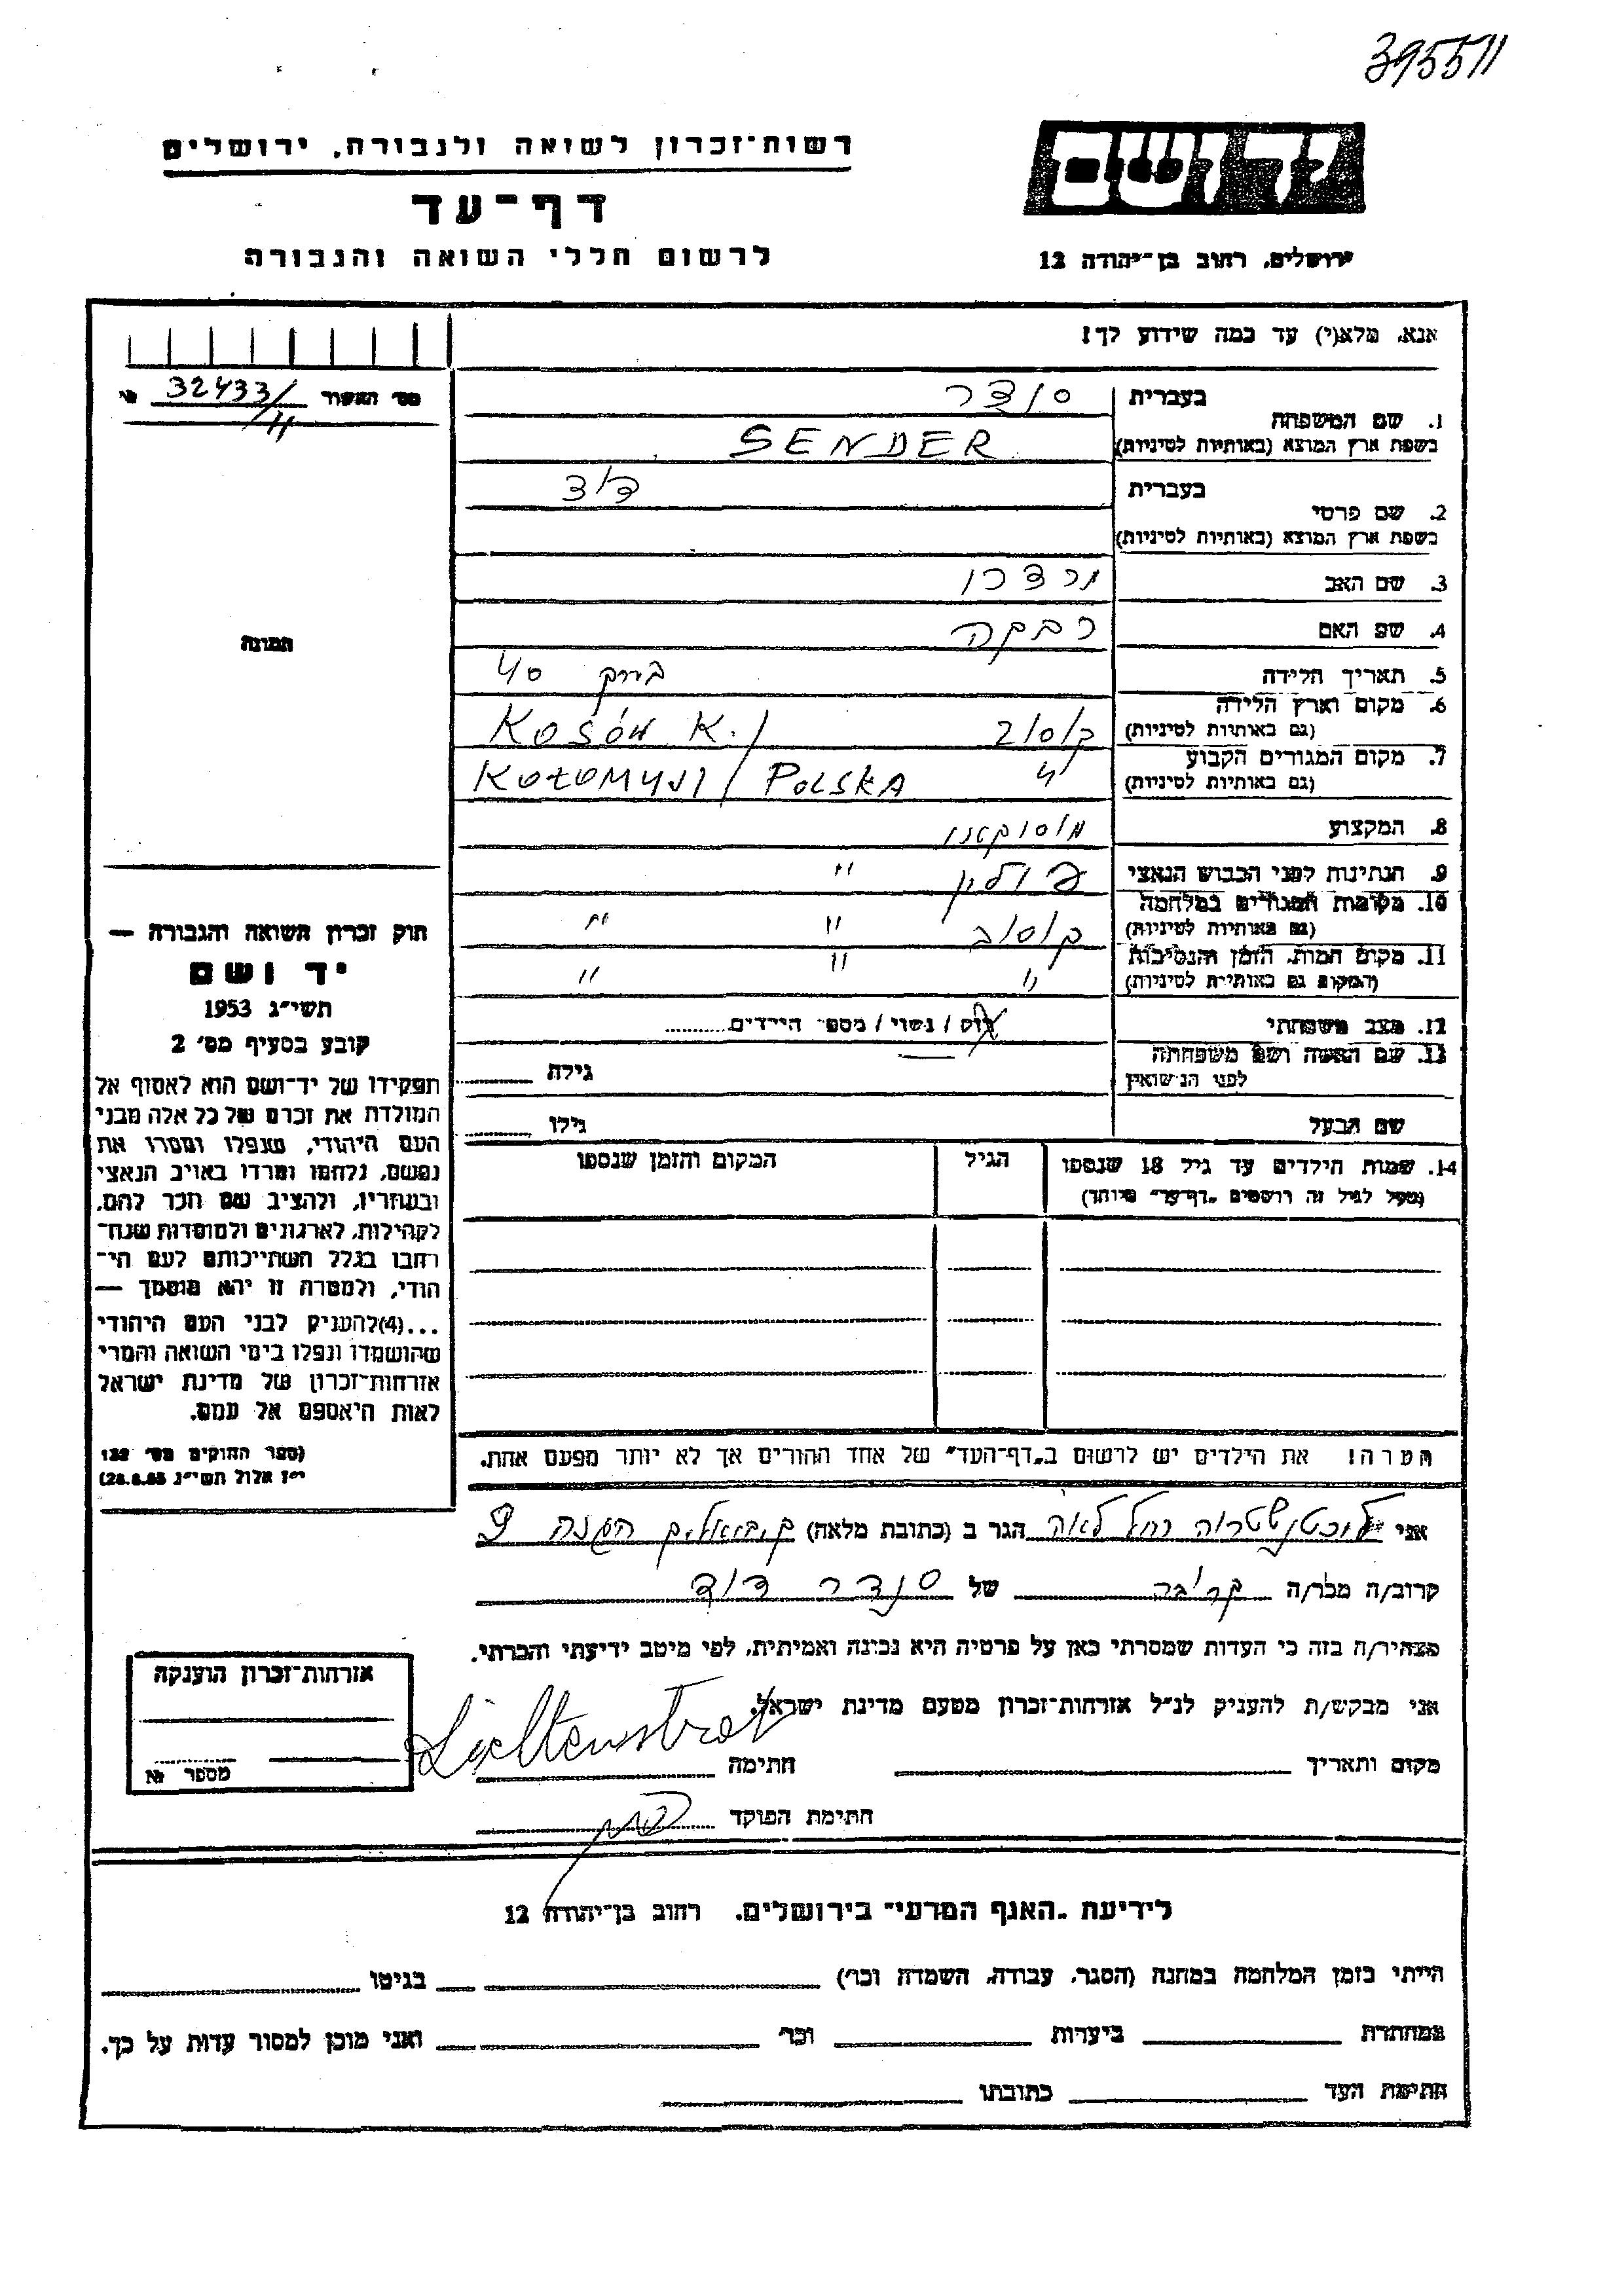 395511
יד ושם
ירושלים, רחוב בן־יהודה 12
רשות־זכרון לשואה ולגבורה, ירושלים
דף־עד
לרשום חללי השואה והגבורה
אנא, מלא(י) עד כמה שידוע לך!
מס׳ האשור 32433/11 №
1. שם המשפחה
בעברית סנדר
בשפת ארץ המוצא (באותיות לטיניות) SENDER
2. שם פרטי
בעברית דוד
בשפת ארץ המוצא (באותיות לטיניות)
3. שם האב מרדכי
4. שם האם רבקה
5. תאריך הלידה 40
6. מקום וארץ הלידה
(גם באותיות לטיניות) קוסוב KOSÓW K./
7. מקום המגורים הקבוע
(גם באותיות לטיניות) " KOŁOMYJI / POLSKA
8. המקצוע
9. הנתינות לפני הכבוש הנאצי פולין "
10. מקומות המגורים במלחמה
(גם באותיות לטיניות) קוסוב " "
11. מקום המות, הזמן והנסיבות
(המקום גם באותיות לטיניות) " " "
12. מצב משפחתי רוק / נשוי / מספר הילדים
13. שם האשה ושם משפחתה
לפני הנישואין
גילה
שם הבעל
גילו
14. שמות הילדים עד גיל 18 שנספו
(מעל לגיל זה רושמים "דף־עד" מיוחד)
הגיל
המקום והזמן שנספו
הערה! את הילדים יש לרשום ב"דף־העד" של אחד ההורים אך לא יותר מפעם אחת.
תמונה
חוק זכרון השואה והגבורה —
יד ושם
תשי״ג 1953
קובע בסעיף מס׳ 2
תפקידו של יד־ושם הוא לאסוף אל
המולדת את זכרם של כל אלה מבני
העם היהודי, שנפלו ומסרו את
נפשם, נלחמו ומרדו באויב הנאצי
ובעוזריו, ולהציב שם וזכר להם,
לקהילות, לארגונים ולמוסדות שנח־
רבו בגלל השתייכותם לעם הי־
הודי, ולמטרה זו יהא מוסמך —
...(4)להעניק לבני העם היהודי
שהושמדו ונפלו בימי השואה והמרי
אזרחות־זכרון של מדינת ישראל
לאות היאספם אל עמם.
(ספר החוקים מס׳ 132
י״ז אלול תשי״ג 28.8.53)
אני ליכטנשטרוה רחל לאה הגר ב (כתובת מלאה) ההגנה 9
קרוב/ה מכר/ה קרובה של סנדר דוד
מצהיר/ה בזה כי העדות שמסרתי כאן על פרטיה היא נכונה ואמיתית, לפי מיטב ידיעתי והכרתי.
אני מבקש/ת להעניק לנ״ל אזרחות־זכרון מטעם מדינת ישראל.
מקום ותאריך
חתימה
חתימת הפוקד
אזרחות־זכרון הוענקה
מספר №
לידיעת "האגף המדעי" בירושלים, רחוב בן־יהודה 12
הייתי בזמן המלחמה במחנה (הסגר, עבודה, השמדה וכו׳) בגיטו
במחתרת ביערות וכו׳ ואני מוכן למסור עדות על כך.
חתימת העד כתובתו